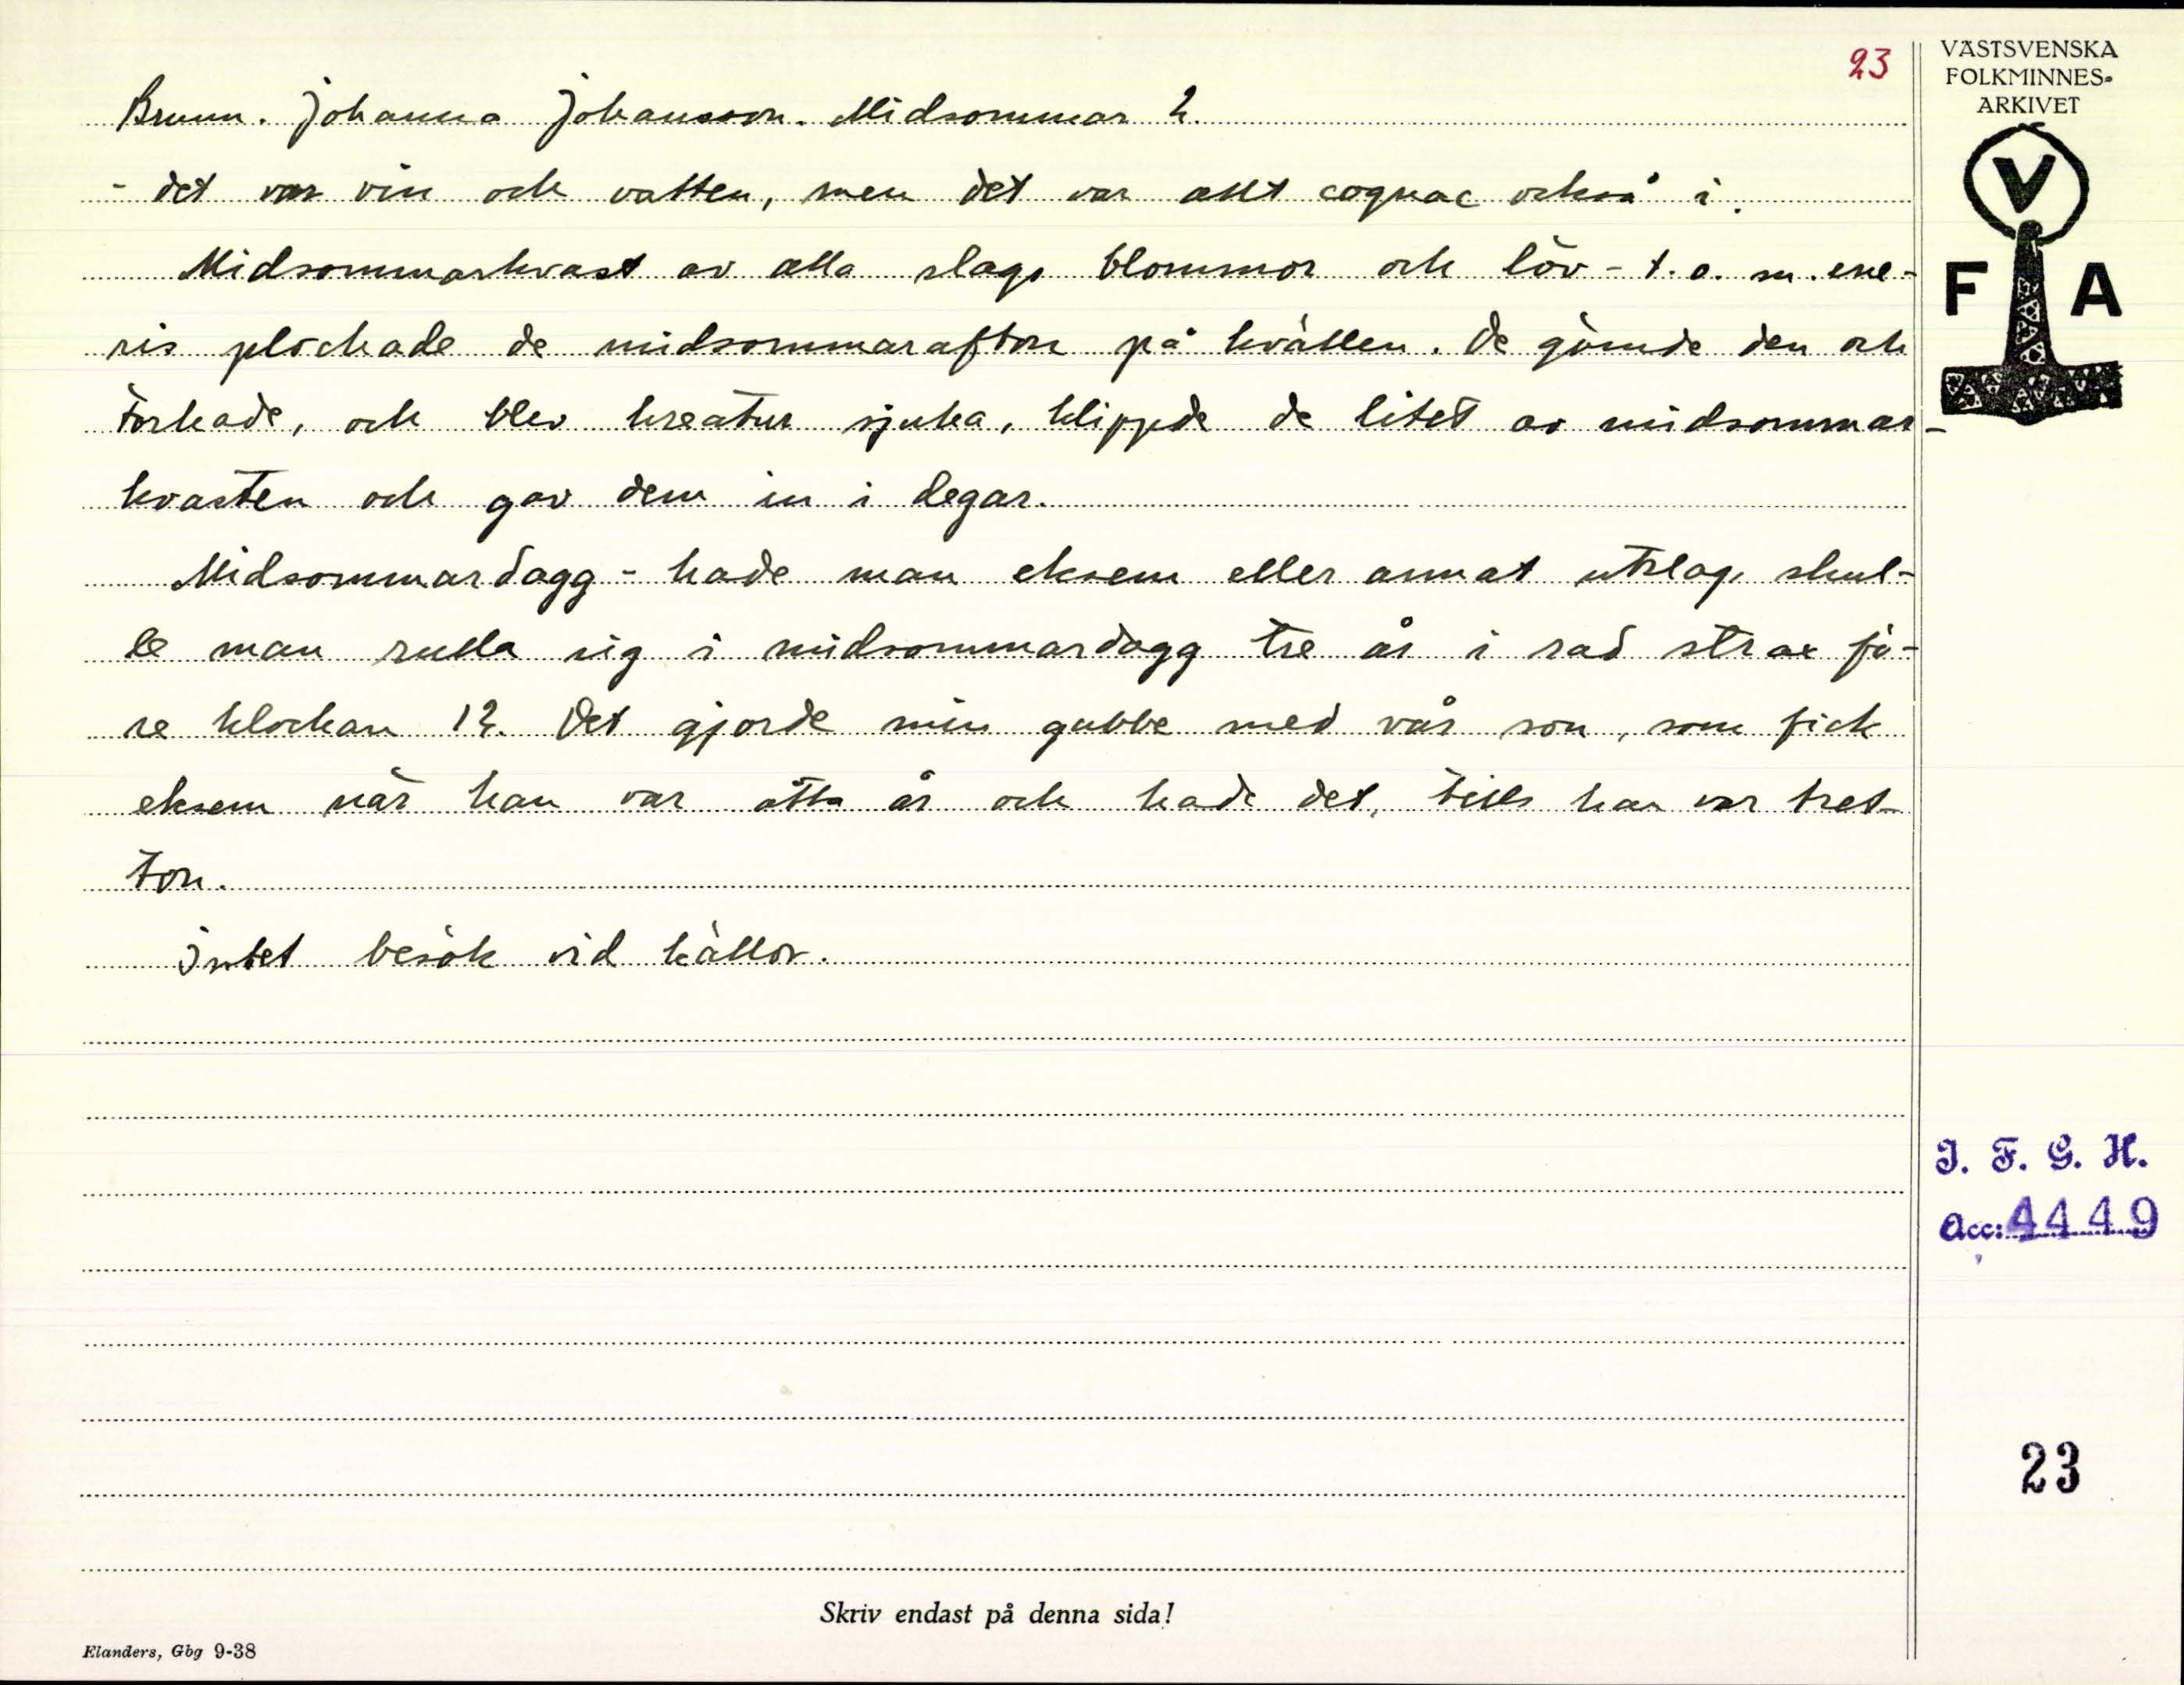 23
Brunn. Johanna Johansson. Midsommar 2.
- det var vin och vatten, men det var allt cognac också i.
Midsommarkvast av alla slags blommor och löv - t.o.m. ene-
ris plockade de midsommarafton på kvällen. De gömde den och
torkade, och blev kreatur sjuka, klippde de litet av midsommar-
kvasten och gav dem in i degar.
Midsommardagg - hade man eksem eller annat utslag, skul-
le man rulla sig i midsommardagg tre år i rad strax fö-
re klockan 12. Det gjorde min gubbe med vår son, som fick
eksem när han var åtta år och hade det, tills han var tret-
ton.
Intet besök vid källor.
VÄSTSVENSKA
FOLKMINNES-
ARKIVET
V
F A
I. F. G. H.
Acc: 4449
23
Skriv endast på denna sida!
Elanders, Gbg 9-38